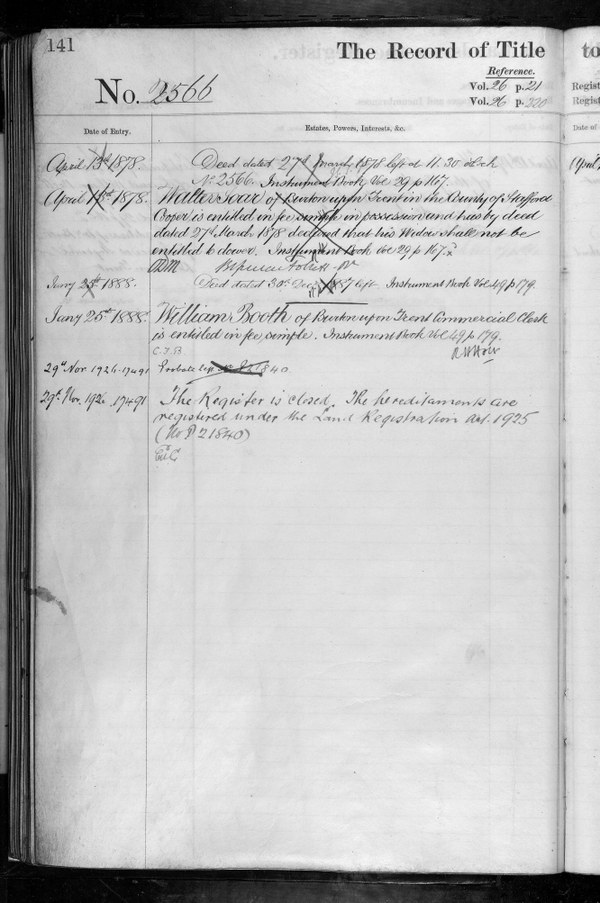 141
The Record of Title
to
Reference.
Vol. 26 p. 21
Regist
No. 2566
Vol. 26 p. 220
Regist
Date of Entry.
Estates, Powers, Interests, &c.
Date of
April 13th 1878.
Deed dated 27th March 1878 left at 11.30 o'clock
No 2566. Instrument Book Vol 29 p 167.
April
April 1878.
Walter Soar of Burton upon Trent in the County of Stafford
is entitled in fee simple in possession and has by deed
dated 27th March 1878 declared that his Widow shall not be
entitled to dower. Instrument Book Vol 29 p 167.
Follett
Jany 25th 1888.
Deed dated 30th Decr 1887 left Instrument Book Vol 49 p 179.
Jany 25th 1888.
William Booth of Burton upon Trent Commercial Clerk
is entitled in fee simple. Instrument Book Vol 49 p 179.
C.T.B.
29th Nov. 1926. 17491
29th Nov. 1926. 17491
The Register is closed. The hereditaments are
registered under the Land Registration Act. 1925
(No P 21840)